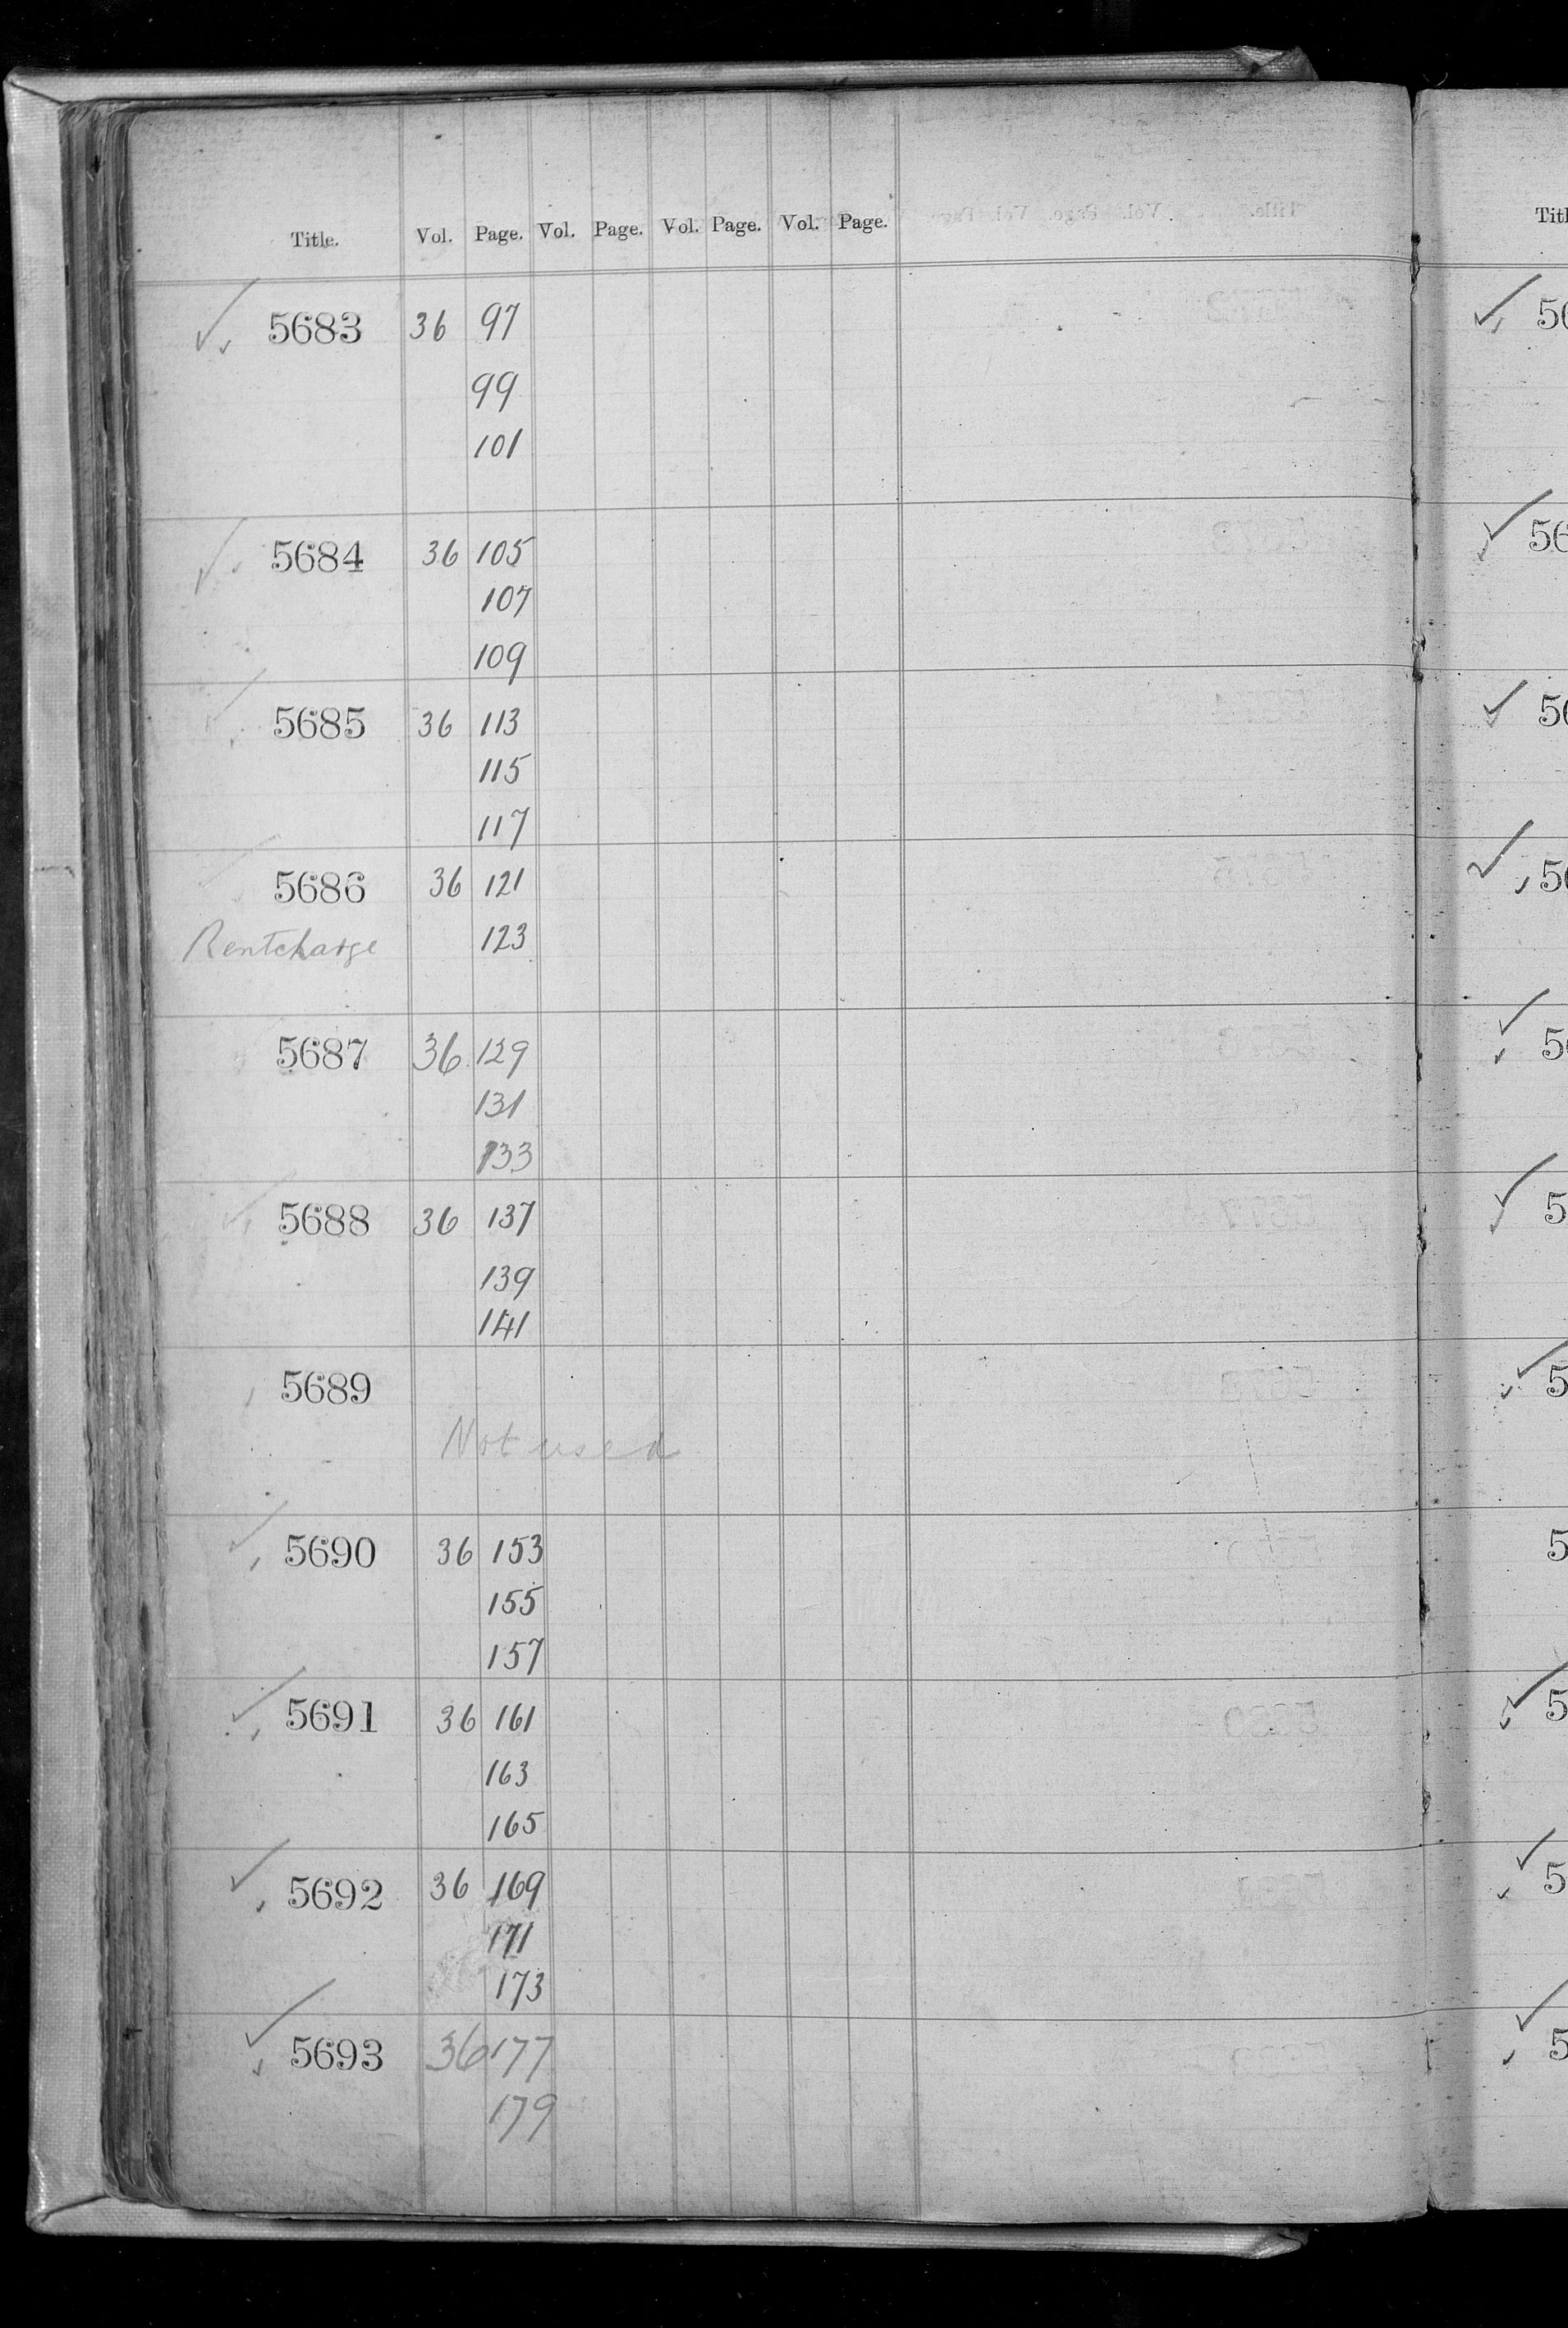 Title. Vol. Page. Vol. Page. Vol. Page. Vol. Page.
5683 36 97
99
101
5684 36 105
107
109
5685 36 113
115
117
5686 36 121
Rentcharge 123
5687 36 129
131
133
5688 36 137
139
141
5689
Not used
5690 36 153
155
157
5691 36 161
163
165
5692 36 169
171
173
5693 36 177
179